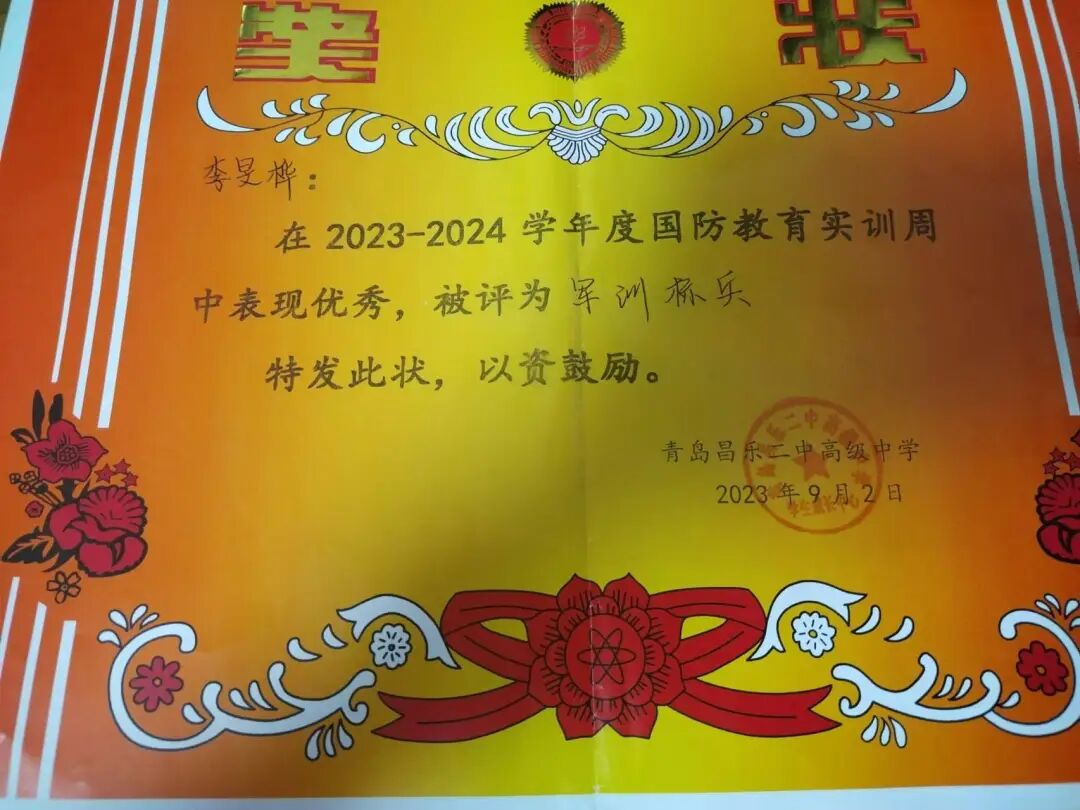 奖状
李旻桦：
在2023-2024学年度国防教育实训周
中表现优秀，被评为军训标兵
特发此状，以资鼓励。
青岛昌乐二中高级中学
2023年9月2日
学生成长中心